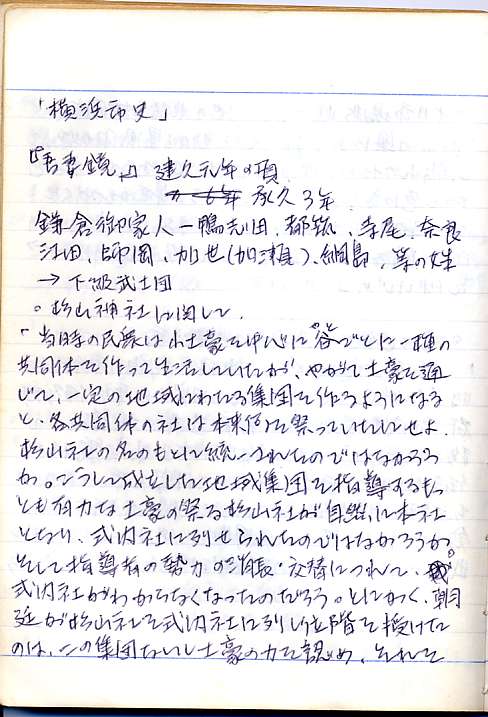 「横浜市史」
『吾妻鏡』 建久元年の項
承久3年
鎌倉御家人ー鴨志田、都筑、寺尾、奈良
江田、師岡、加世(加瀬)、綱島、等の姓
→下級武士団
○杉山神社に関して
「当時の民衆は小土豪を中心に谷ごとに一種の
共同体を作って生活していたが、やがて土豪を通
じて、一定の地域にわたる集団を作るようになる
と、各共同体の社は本来何を祭っていたにせよ、
杉山社の名のもとに統一されたのではなかろう
か。こうして成立した地域集団を指導するもっ
とも有力な土豪の祭る杉山社が自然に本社
となり、式内社に列せられたのではなかろうか。
そして指導者の勢力の消長・交替につれて、
式内社がわからなくなったのだろう。とにかく、朝
廷が杉山社を式内社に列し位階を授けた
のは、この集団ないし土豪の力を認め、それを